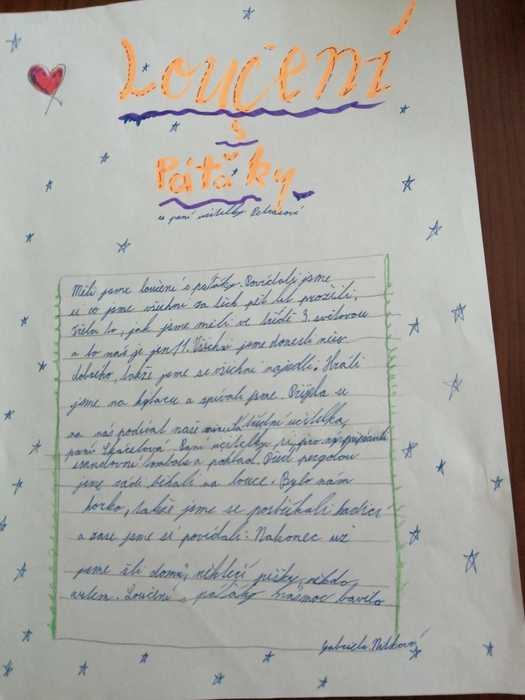 Loučení
s
Páťáky
u paní učitelky
Měli jsme loučení s páťáky. Povídali jsme
si co jsme všichni za těch pět let prožili.
to, jak jsme měli ve třídě 3. světovou
a to nás je jen 11. Všichni jsme donesli něco
dobrého, takže jsme se všichni najedli. Hráli
jsme na kytaru a zpívali jsme. Přijela se
na nás podívat naše třídní učitelka,
paní Skácelová. Paní učitelky si pro nás připravili
srandovní tombolu a poklad. Před pergolou
jsme rádi běhali na louce. Bylo nám
horko, takže jsme se postříkali hadicí
a zase jsme si povídali. Nakonec už
jsme šli domů, někteří pěšky, někdo
autem. Loučení s páťáky hrůzmoc bavilo
Gabriela